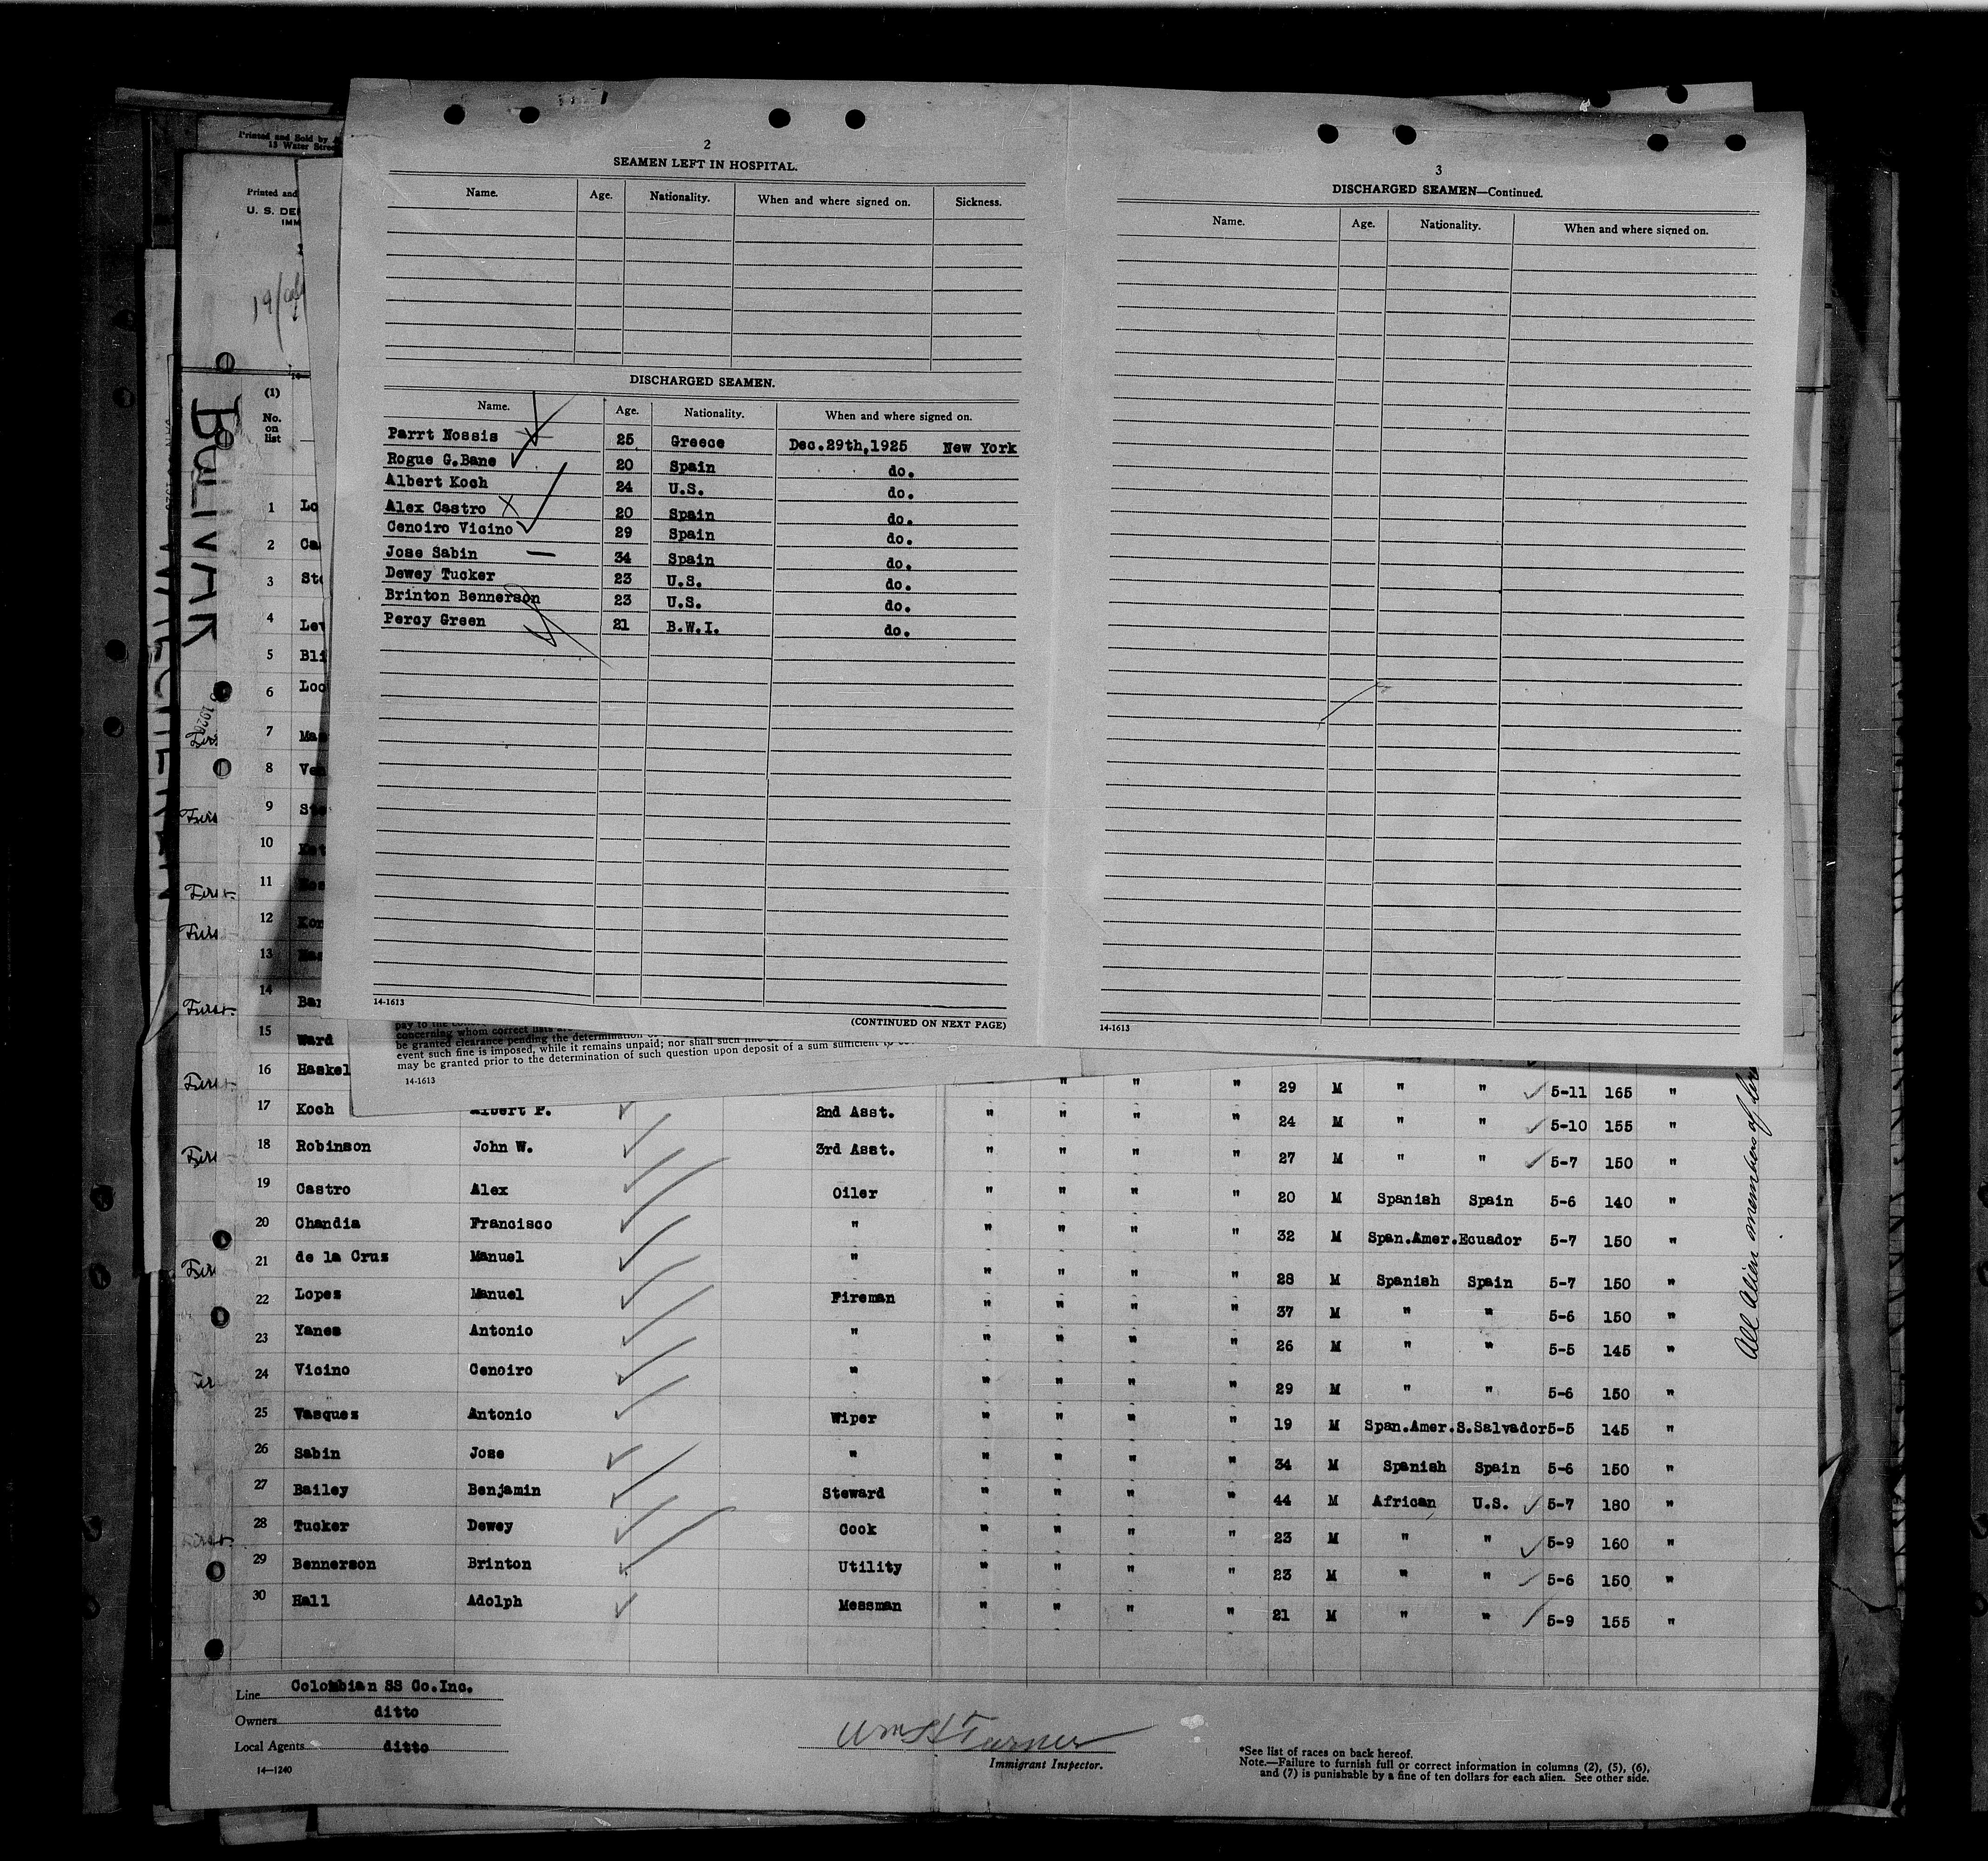 2
SEAMEN LEFT IN HOSPITAL.
Name. Age. Nationality. When and where signed on. Sickness.
DISCHARGED SEAMEN.
Name. Age. Nationality. When and where signed on.
Parrt Nossis 25 Greece Dec.29th,1925 New York
Rogue G.Bane 20 Spain do.
Albert Koch 24 U.S. do.
Alex Castro 20 Spain do.
Cenoiro Vicino 29 Spain do.
Jose Sabin 34 Spain do.
Dewey Tucker 23 U.S. do.
Brinton Bennerson 23 U.S. do.
Percy Green 21 B.W.I. do.
14-1613
(CONTINUED ON NEXT PAGE)
3
DISCHARGED SEAMEN—Continued.
Name. Age. Nationality. When and where signed on.
14-1613
Printed and Sold by
13 Water
Printed and
U. S. DE
IMM
BOLIVAR
(1)
No.
on
list
1 Lo
2 Ca
3 Ste
4 Lev
5 Bli
6 Loo
7 Ma
8 Ven
9 Ste
10
11
12 Kor
13
14 Bar
15 Ward
pay to the
concerning whom correct lists
be granted clearance pending the determination
event such fine is imposed, while it remains unpaid; nor shall such
may be granted prior to the determination of such question upon deposit of a sum sufficient to
14-1613
16 Haskel " " " 29 M " " 5-11 165 "
17 Koch Albert P. 2nd Asst. " " " " 24 M " " 5-10 155 "
18 Robinson John W. 3rd Asst. " " " " 27 M " " 5-7 150 "
19 Castro Alex Oiler " " " " 20 M Spanish Spain 5-6 140 "
20 Chandia Francisco " " " " " 32 M Span.Amer.Ecuador 5-7 150 "
21 de la Cruz Manuel " " " " " 28 M Spanish Spain 5-7 150 "
22 Lopez Manuel Fireman " " " " 37 M " " 5-6 150 "
23 Yanes Antonio " " " " " 26 M " " 5-5 145 "
24 Vicino Cenoiro " " " " " 29 M " " 5-6 150 "
25 Vasquez Antonio Wiper " " " " 19 M Span.Amer.S.Salvador 5-5 145 "
26 Sabin Jose " " " " " 34 M Spanish Spain 5-6 150 "
27 Bailey Benjamin Steward " " " " 44 M African U.S. 5-7 180 "
28 Tucker Dewey Cook " " " " 23 M " " 5-9 160 "
29 Bennerson Brinton Utility " " " " 23 M " " 5-6 150 "
30 Hall Adolph Messman " " " " 21 M " " 5-9 155 "
First
First
First
All Alien members of
Line Colombian SS Co.Inc.
Owners ditto
Local Agents ditto
14—1240
Wm H Turner
Immigrant Inspector.
*See list of races on back hereof.
Note.—Failure to furnish full or correct information in columns (2), (5), (6),
and (7) is punishable by a fine of ten dollars for each alien. See other side.